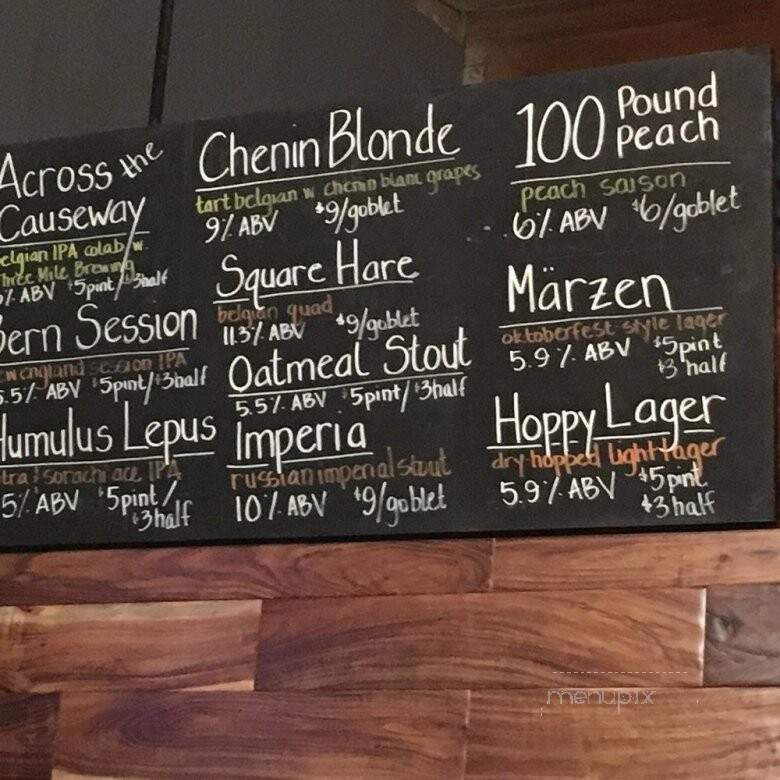 Across the
Causeway
elgian IPA colab w.
Three Mile Brewing
% ABV $5pint/$3half
ern Session
w england session IPA
5.5% ABV $5pint/$3half
Humulus Lepus
tra & sorachi ace IPA
5% ABV $5pint/
$3half
Chenin Blonde
tart belgian w chenin blanc grapes
9% ABV $9/goblet
Square Hare
belgian quad
11.3% ABV $9/goblet
Oatmeal Stout
5.5% ABV $5pint/$3half
Imperia
russian imperial stout
10% ABV $9/goblet
100 Pound
Peach
peach saison
6% ABV $6/goblet
Märzen
oktoberfest style lager
5.9% ABV $5pint
$3 half
Hoppy Lager
dry hopped light lager
5.9% ABV $5pint
$3half
menupix